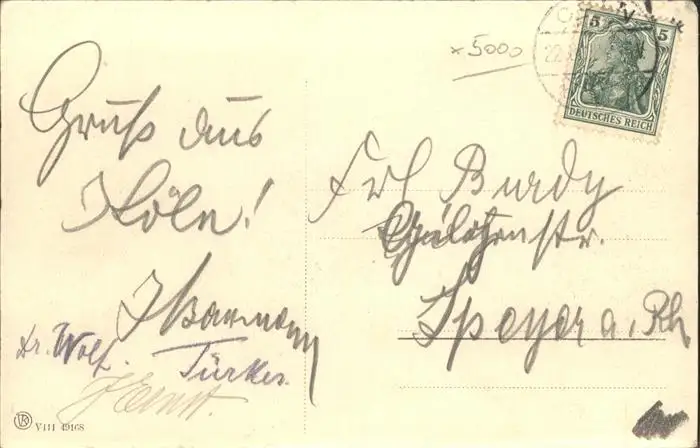 * 5000
5 5
DEUTSCHES REICH
Gruß aus
Köln!
Dr. Wolf. Türker.
J Ernst.
Frl Burdy
Gilgenstr.
Speyer a. Rh
VIII 49168